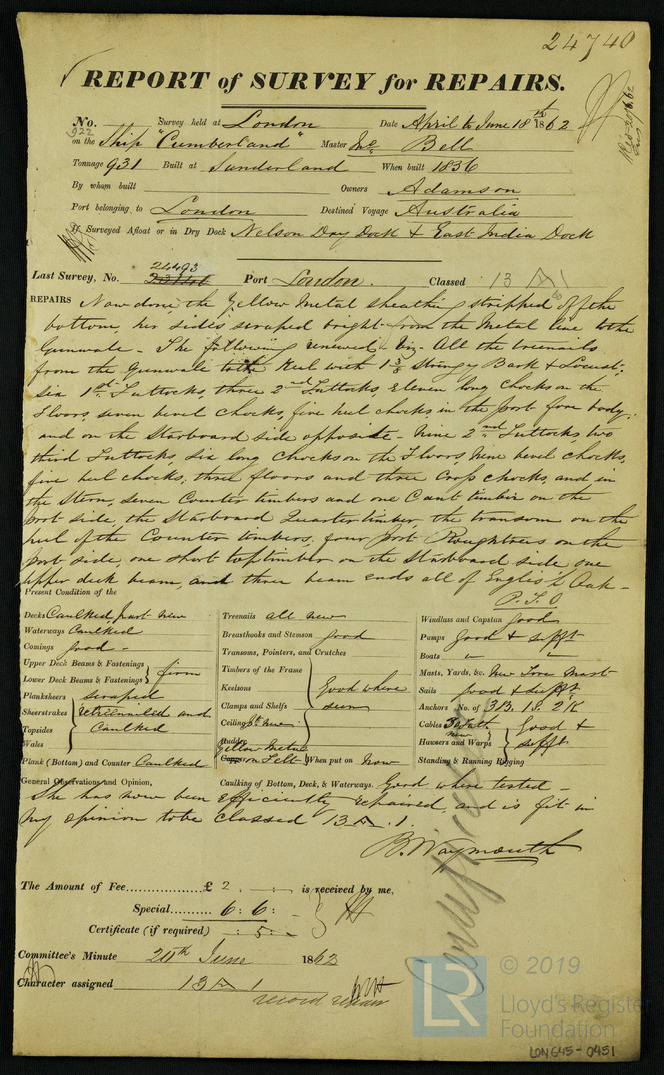 24740
REPORT of SURVEY for REPAIRS.
No. 922 Survey held at London Date April to June 18th 1862
on the Ship "Cumberland" Master Bell
Tonnage 931 Built at Sunderland When built 1836
By whom built Owners Adamson
Port belonging to London Destined Voyage Australia
If Surveyed Afloat or in Dry Dock Nelson Dry Dock & East India Dock
24493
Last Survey, No. Port London. Classed 13 A 1
REPAIRS Now done the Yellow Metal sheathing stripped off the
bottom, her sides scraped bright from the Metal line to the
Gunwale - The following renewed - viz - All the treenails
from the Gunwale to the Keel with 1 3/8 Stringy Bark & Locust;
six 1st Futtocks, three 2nd Futtocks, eleven long Chocks on the
Floors, seven bevel chocks, five heel chocks, in the port fore body;
and on the Starboard side opposite - Nine 2nd Futtocks two
third Futtocks, six long chocks on the Floors, Nine bevel chocks,
five heel chocks, three floors and three Cross chocks, and in
the Stern, seven Counter timbers and one Cant timber on the
port side, the Starboard Quarter timber, the transom on the
heel of the Counter timbers, four port Roughtrees on the
port side, one short toptimber on the Starboard side one
upper deck beam, and three beam ends all of English Oak -
P.T.O
Present Condition of the
Decks Caulked, part new
Waterways Caulked
Comings good -
Upper Deck Beams & Fastenings
Lower Deck Beams & Fastenings } firm
Planksheers scraped
Sheerstrakes retreenailed and
Topsides caulked
Wales
Plank (Bottom) and Counter Caulked
Treenails all new
Breasthooks and Stemson good
Transoms, Pointers, and Crutches
Timbers of the Frame
Keelsons good where
Clamps and Shelfs seen
Ceiling pt new
Rudder
Yellow Metal
Copper on Felt When put on Now
Windlass and Capstan good
Pumps good & sufft
Boats " "
Masts, Yards, &c. New Fore Mast
Sails good & sufft
Anchors No. of 3 B. 1 S. 2 K
Cables 30 Fath new good &
Hawsers and Warps sufft
Standing & Running Rigging
General Observations and Opinion, Caulking of Bottom, Deck, & Waterways. Good where tested -
She has now been efficiently repaired, and is fit in
my opinion to be classed 13 A. 1.
B. Waymouth
The Amount of Fee £ 2 . - . is received by me,
Special 6 : 6 : -
Certificate (if required) - : 5 : -
Committee's Minute 24th June 1862
Character assigned 13 A 1
© 2019
LR
Lloyd's Register
Foundation
LON645-0451